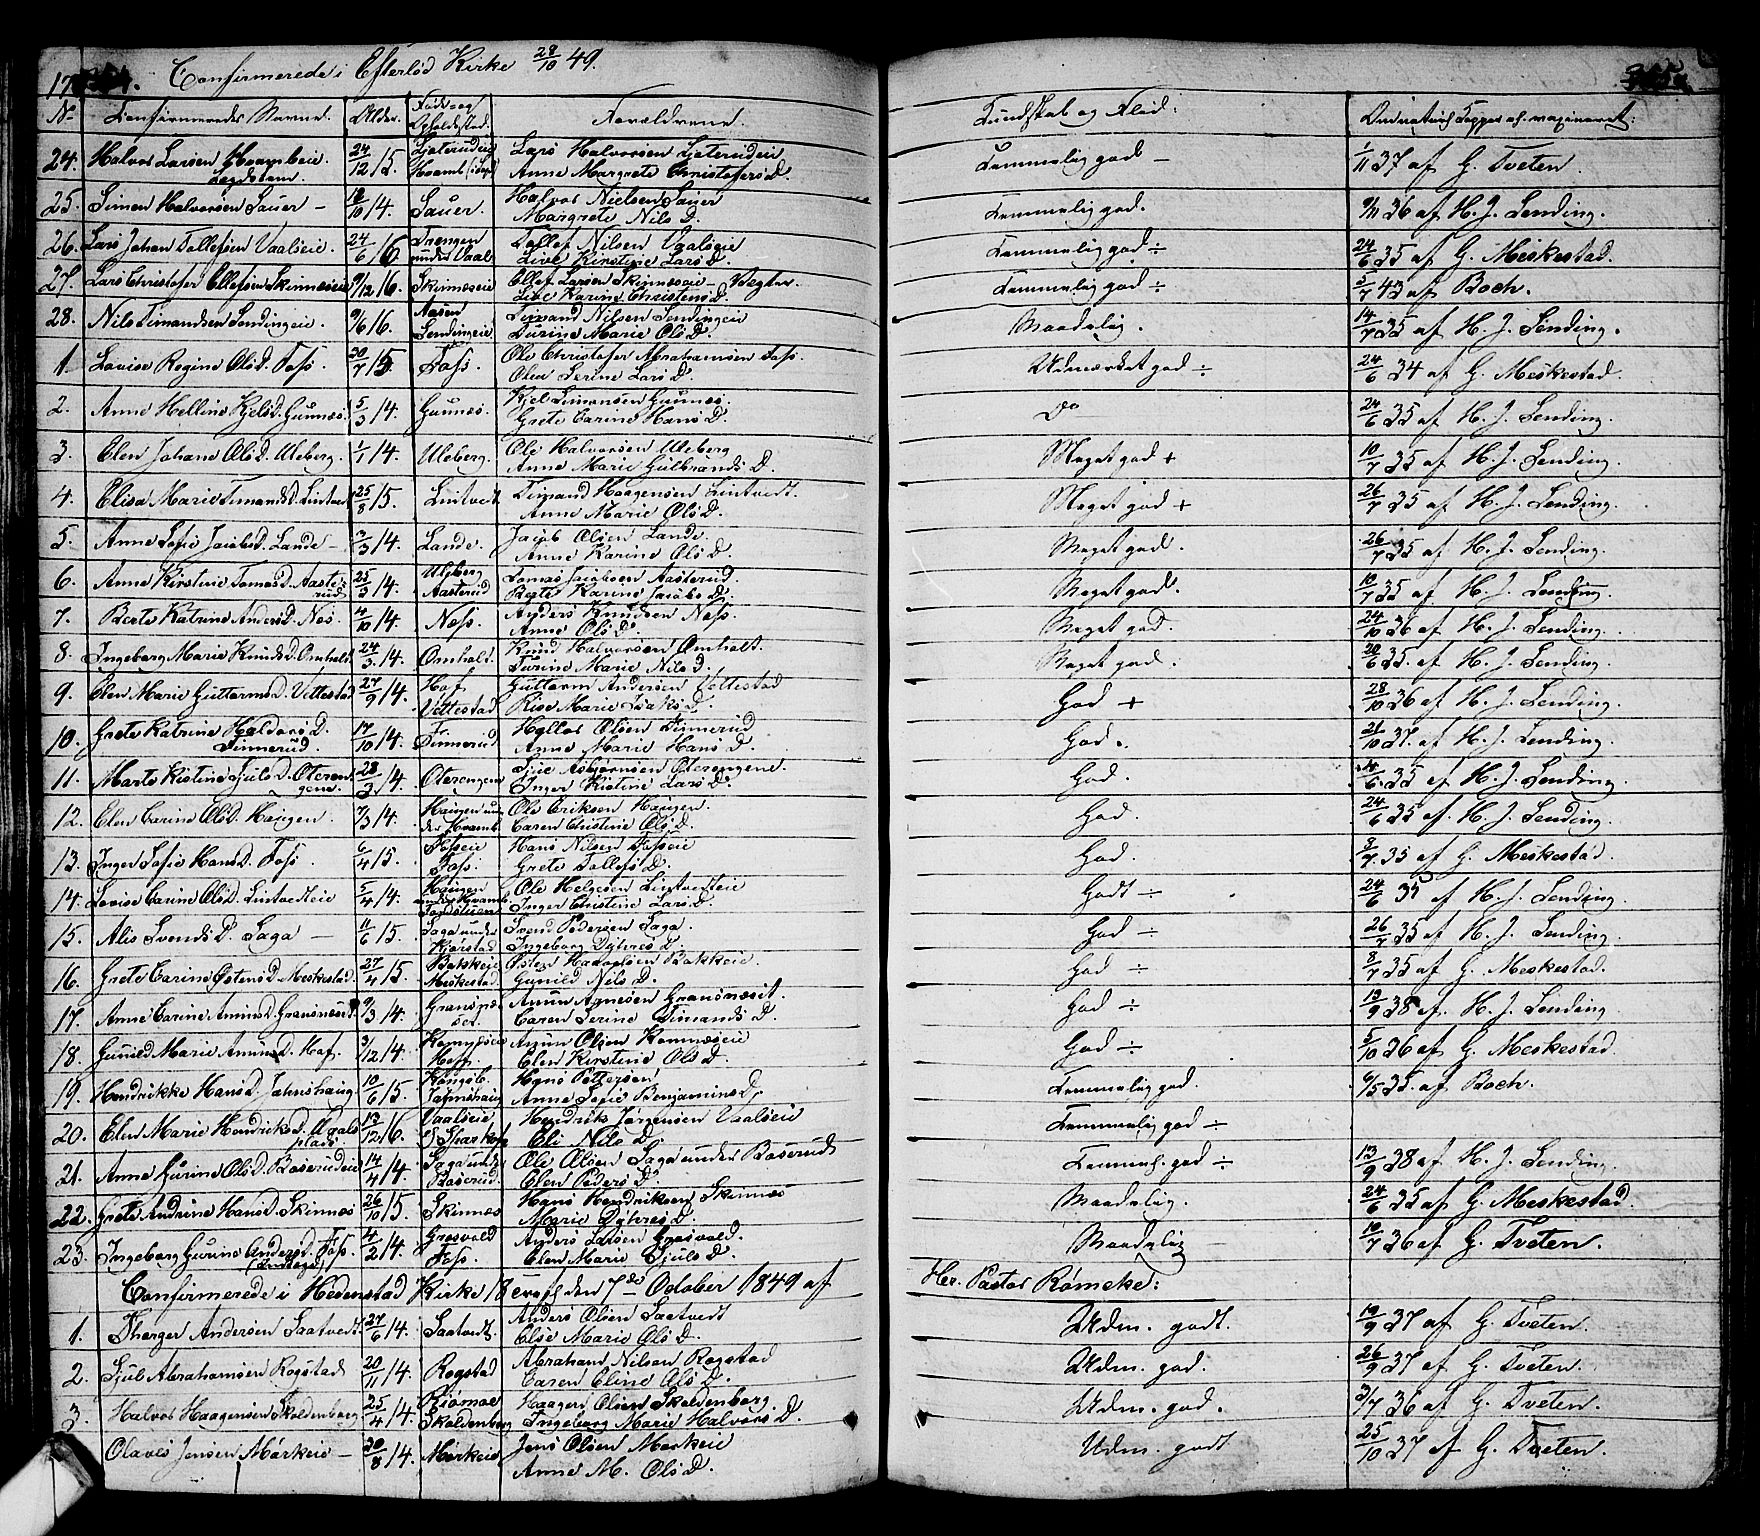 Confirmerede i Efterlød Kirke 28/10 49.
No Confirmeredes Navne. Alder. Føde og Opholdssted. Forældrene. Kundskab og Flid.
24. Halvor Larsen Hvambeie Lægdslem. 24/12 15. Hvamb Lars Halvorsen Anne Margrete Christofersd. Temmelig god — 1/11 37 af G. Tveten.
25. Simen Halvorsen Sauer — 18/10 14. Sauer. Halvor Nielsen Sauer Margrete Nils D. Temmelig god. 9/11 36 af H. J. Lending.
26. Lars Johan Tollefsen Vaalseie. 24/6 16. under Vaal Tollef Nilsen Vaalseie Live Kirstine Lars D. Temmelig god ÷ 24/6 35 af G. Meskestad.
27. Lars Christofer Ellefsen Skinnæseie 9/12 16. Skinnæseie Ellef Larsen Skinnæseie — Vegter. Live Karine Christens D. Temmelig god ÷ 5/7 43 af Boch.
28. Nils Timandsen Lendingeie. 9/6 16. Aasen Lendingeie Timand Nilsen Lendingeie Turine Marie Ols D. Maadelig. 14/7 35 af H. J. Lending.
1. Lovise Regine Olsd. Foss. 20/7 15. Foss. Ole Christofer Abrahamsen Foss. Olea Serine Lars D. Udmærket god ÷ 24/6 34 af G. Meskestad.
2. Anne Helline Kjelsd. Gunnæs. 5/3 14. Gunnæs. Kjel Simensen Gunnæs. Grete Carine Hans D. Do 24/6 35 af H. J. Lending.
3. Elen Johane Ols D. Uleberg. 1/1 14. Uleberg. Ole Halvorsen Uleberg Anne Marie Gulbrands D. Meget god + 10/7 35 af H. J. Lending.
4. Elisa Marie Timands D. Lintvedt 25/8 15. Lintvedt Timand Haagensen Lintvedt. Anne Marie Ols D. Meget god + 26/7 35 af H. J. Lending.
5. Anne Sofie Jacobsd. Lande — 14. Lande. Jacob Olsen Lande. Anne Karine Ols D. Meget god. 26/7 35 af H. J. Lending.
6. Anne Kirstine Tomas D. Aasterud. 25/3 14. Uleberg Aasterud Tomas Jacobsen Aasterud. Berte Karine Jacobs D. Meget god. 10/7 35 af H. J. Lending.
7. Berte Katrine Anders D. Næs. 4/10 14. Næss. Anders Knudsen Næss. Anne Ols D. Meget god. 24/10 36 af H. J. Lending.
8. Ingeborg Marie Knuds D. Omholt. 24/3 14. Omholt. Knud Halvorsen Omholt. Turine Marie Nils D. Meget god. 20/6 35. af H. J. Lending.
9. Elen Marie Guttormsd. Vettestad 27/9 14. Hof Vettestad Guttorm Andersen Vettestad Rise Marie Isaks D. God + 28/10 36 af H. J. Lending.
10. Grete Katrine Haldors D. Tinnerud. 17/10 14. Tinnerud Olsen Tinnerud Anne Marie Hans D. God. 21/10 37. af H. J. Lending.
11. Marte Kistine Sjuls D. Oterengene. 28/3 14. Oterengene Asbjørnsen Oterengene. Inger Kistine Lars D. God. 35 af H. J. Lending.
12. Elen Carine Ols D. Haugen. 7/3 14. Haugen under Hvamb Ole Eriksen Haugen. Caren Christine Ols D. God. 24/6 35 af. H. J. Lending.
13. Inger Sofie Hans D. Foss. 6/4 15. Fosseie Foss. Hans Nilsen Fosseie Grete Tollefs D. God. 3/7. 35 af G. Meskestad.
14. Lovise Carine Ols D. Lintvedteie 5/4 14. Haugen under Hvamb Ole Helgesen Lintvedteie Inger Christine Lars D. Godt ÷ 24/6 35 af H. J. Lending.
15. Alis Svends D. Saga — 11/6 15. Saga under Kjørstad Svend Pedersen Saga. Ingeborg Dyhres D. God ÷ 26/7 35 af H. J. Lending.
16. Grete Carine Østens D. Meskestad. 27/4 15. Bakkeie Meskestad Østen Bakkeie. Gunild Nils D. God ÷ 8/7 35 af G. Meskestad.
17. Anne Carine Amunds D. Gransnæset 9/3 14. Gransnæset. Amun Agnesen Gransnæset. Caren Serine Simands D. God ÷ 19/9 38 af H. J. Lending.
18. Gunild Marie Amuns D. Hof. 9/12 14. Hoff. Amun Olsen Elen Kirstine Ols D. God ÷ 5/10 36 af G. Meskestad.
19. Hendrikke Hans D. Jahnshaug 10/6 15. Kongsb. Jahnshaug Hans Pettersen Anne Sofie Benjamins D. Temmelig god. 6/5 35. af Boch.
20. Elen Marie Hendriksd. 13/12 16. Vaalseie Hendrik Jørgensen Vaalseie Eli Nils D. Temmelig god ÷
21. Anne Gurine Ols D. Baserudeie 14/4 14. Saga under Baserud. Ole Olsen Saga under Baserud Elen Peders D. Temmel. god ÷ 13/9 38 af H. J. Lending.
22. Grete Andrine Hans D. Skinnæs 26/10 15. Skinnæs Hans Hendriksen Skinnæs Marie Dyhres D. Maadelig. 24/6 35 af G. Meskestad.
23. Ingeborg Gurine Andersd. Foss. 4/2 14. Grosvold Foss. Anders Larsen Grosvold. Elen Marie Sjuls D. Maadelig 10/7 36 af G. Tveten.
Confirmerede i Hedenstad Kirke den 7de October 1849 af Hr. Pastor Rømcke:
1. Therger Andersen Saatvedt 27/6 14. Saatvedt. Anders Olsen Saatvedt Else Marie Ols D. Udm. godt. 19/9 37 af G. Tveten.
2. Sjul Abrahamsen Rogstad 20/11 14. Rogstad Abraham Nilsen Rogstad Caren Eline Ols D. Udm. god. 26/9 37 af G. Tveten.
3. Halvor Haagensen Skoldenborg 25/4 14. Skoldenberg Haagen Olsen Skoldenberg. Ingeborg Marie Halvors D. Udm. god. 3/7 36 af G. Tveten.
Olaves Jensen Mørkeie — 30/8 14. Mørkeie Jens Olsen Mørkeie Anne M. Ols D. Udm. godt 25/10 37 af G. Tveten.